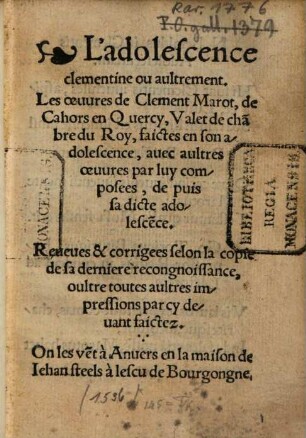 Rar. 1776
P.O. gall. 1379
L'adolescence
clementine ou aultrement.
Les œuures de Clement Marot, de
Cahors en Quercy, Valet de chã
bre du Roy, faictes en son a
dolescence, auec aultres
œuures par luy com
posees, de puis
sa dicte ado
lescẽce.
Reueues & corrigees selon la copie
de sa derniere recongnoissance,
oultre toutes aultres im
pressions par cy de
uant faictez.
On les vẽt à Anuers en la maison de
Iehan steels à lescu de Bourgongne.
BIBLIOTHECA
REGIA
MONACENSIS
MONACENSIS
(1536